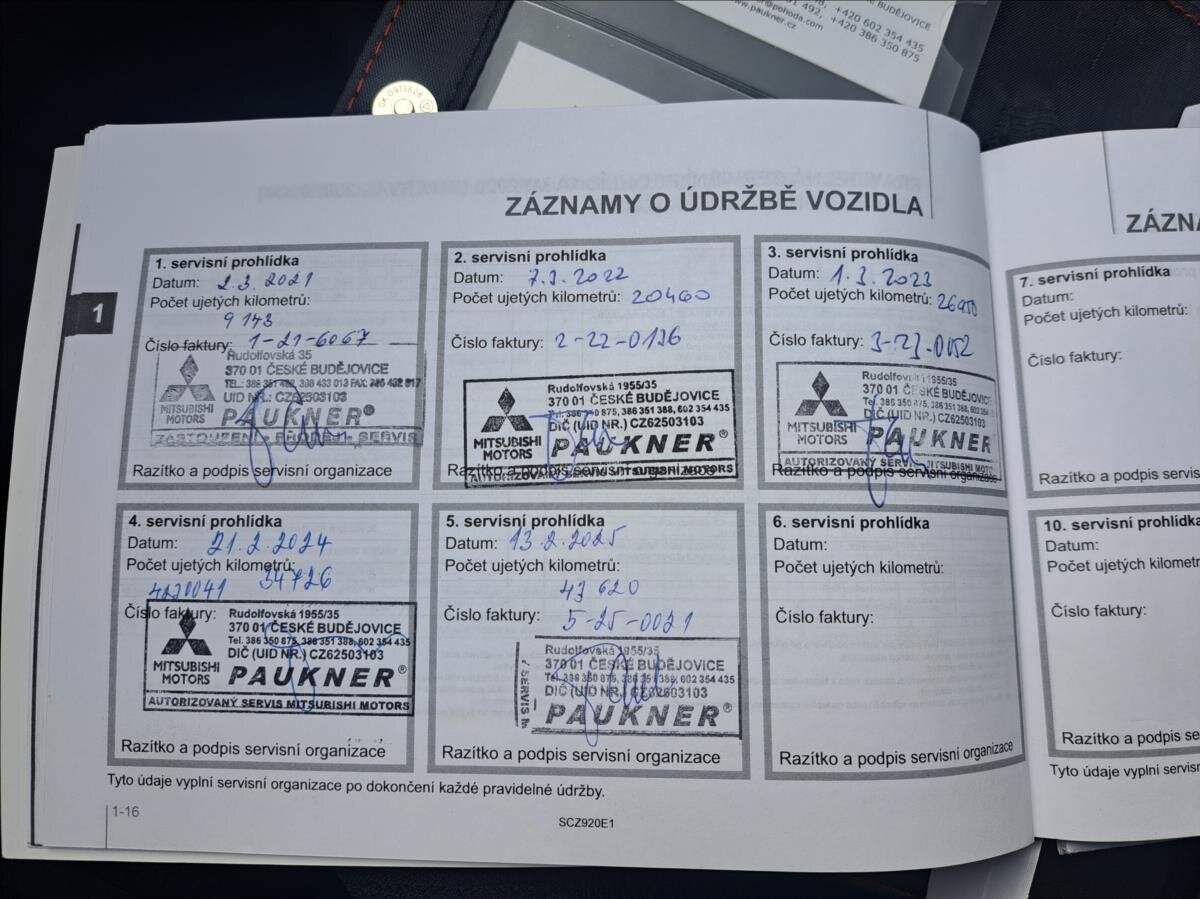 BUDĚJOVICE
+420 602 354 435
492, +420 386 350 875
@pohoda.com
www.paukner.cz
GK 0913628
ZÁZNAMY O ÚDRŽBĚ VOZIDLA
1
1. servisní prohlídka
Datum: 2.3.2021
Počet ujetých kilometrů:
9 143
Číslo faktury: 1-21-6067
Rudolfovská 35
370 01 ČESKÉ BUDĚJOVICE
TEL.: 386 351 492, 388 433 013 FAX:
UID NR.: CZ62503103
MITSUBISHI
MOTORS
PAUKNER®
SERVIS
Razítko a podpis servisní organizace
2. servisní prohlídka
Datum: 7.3.2022
Počet ujetých kilometrů: 20460
Číslo faktury: 2-22-0136
Rudolfovská 1955/35
370 01 ČESKÉ BUDĚJOVICE
Tel. 386 350 875, 386 351 388, 602 354 435
DIČ (UID NR.) CZ62503103
MITSUBISHI
MOTORS
PAUKNER®
AUTORIZOVANÝ SERVIS MITSUBISHI MOTORS
Razítko a podpis servisní organizace
3. servisní prohlídka
Datum: 1.3.2023
Počet ujetých kilometrů: 26950
Číslo faktury: 3-23-0052
Rudolfovská 1955/35
370 01 ČESKÉ BUDĚJOVICE
Tel. 386 350 875, 386 351 388, 602 354 435
DIČ (UID NR.) CZ62503103
MITSUBISHI
MOTORS
PAUKNER®
AUTORIZOVANÝ SERVIS MITSUBISHI MOTORS
Razítko a podpis servisní organizace
4. servisní prohlídka
Datum: 21.2.2024
Počet ujetých kilometrů:
4240041 34726
Číslo faktury:
Rudolfovská 1955/35
370 01 ČESKÉ BUDĚJOVICE
Tel. 386 350 875, 386 351 388, 602 354 435
DIČ (UID NR.) CZ62503103
MITSUBISHI
MOTORS
PAUKNER®
AUTORIZOVANÝ SERVIS MITSUBISHI MOTORS
Razítko a podpis servisní organizace
5. servisní prohlídka
Datum: 13.2.2025
Počet ujetých kilometrů:
43 620
Číslo faktury: 5-25-0021
Rudolfovská 1955/35
370 01 ČESKÉ BUDĚJOVICE
Tel. 386 350 875, 386 351 388, 602 354 435
DIČ (UID NR.) CZ62503103
PAUKNER®
SERVIS
Razítko a podpis servisní organizace
6. servisní prohlídka
Datum:
Počet ujetých kilometrů:
Číslo faktury:
Razítko a podpis servisní organizace
Tyto údaje vyplní servisní organizace po dokončení každé pravidelné údržby.
1-16
SCZ920E1
ZÁZNA
7. servisní prohlídka
Datum:
Počet ujetých kilometrů:
Číslo faktury:
Razítko a podpis servis
10. servisní prohlídka
Datum:
Počet ujetých kilomet
Číslo faktury:
Razítko a podpis se
Tyto údaje vyplní servis